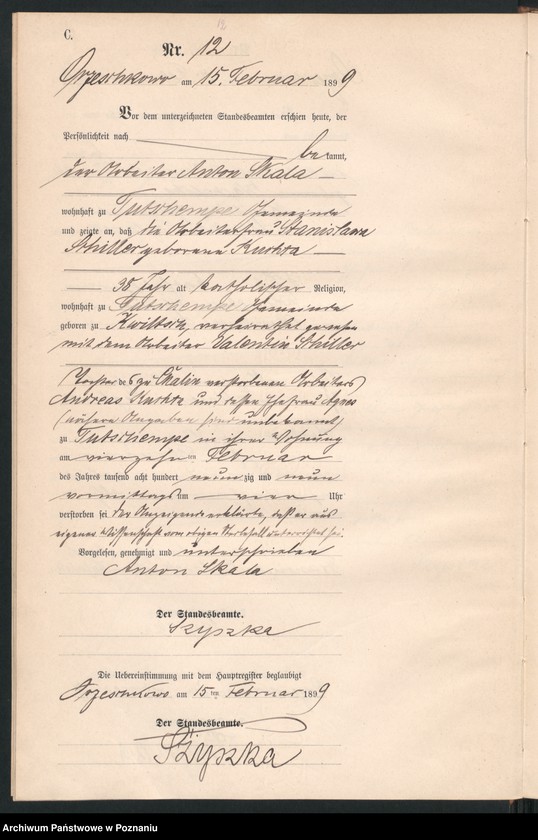 12
C.
Nr. 12
Orzeschkowo am 15. Februar 1899
Vor dem unterzeichneten Standesbeamten erschien heute, der
Persönlichkeit nach
bekannt,
der Arbeiter Anton Skala
wohnhaft zu Tutschempe Gemeinde
und zeigte an, daß die Arbeiterfrau Stanislawa
Schiller geborene Kuchta
38 Jahr alt katholischer Religion,
wohnhaft zu Tutschempe Gemeinde
geboren zu Kwiltsch, verheirathet gewesen
mit dem Arbeiter Valentin Schiller
Tochter des zu verstorbenen Arbeiters
Andreas Kuchta und dessen Ehefrau Agnes
(nähere Angaben sind unbekannt)
zu Tutschempe in ihrer Wohnung
am vierzehnten Februar
des Jahres tausend acht hundert neunzig und neun
vormittags um vier Uhr
verstorben sei. Der Anzeigende erklärte, daß er aus
eigener Wissenschaft vom obigen Sterbefall unterrichtet sei.
Vorgelesen, genehmigt und unterschrieben
Anton Skala
Der Standesbeamte.
Szyszka
Die Uebereinstimmung mit dem Hauptregister beglaubigt
Orzeschkowo am 15ten Februar 1899
Der Standesbeamte.
Szyszka
Archiwum Państwowe w Poznaniu